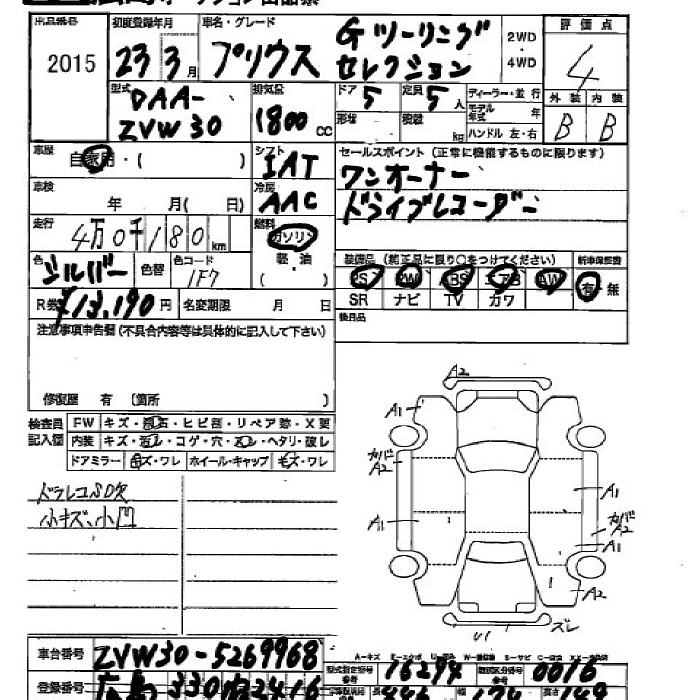 出品番号 初度登録年月 車名・グレード 評価点
2015 23年3月 プリウス Gツーリング セレクション 2WD・4WD 4
型式 排気量 ドア 定員 ディーラー・並行 外装 内装
DAA-ZVW30 1800cc 5 5人 形状 積載 kg モデル年式 年 ハンドル 左・右 B B
車歴 自家用・( ) シフト IAT セールスポイント (正常に機能するものに限ります)
車検 年 月( 日) 冷房 AAC ワンオーナー
走行 4万0千180km 燃料 ガソリン ドライブレコーダー
軽・油
( )
装備品 (純正品に限り○をつけてください) 新車保証書
色 シルバー 色替 色コード 1F7 PS PW ABS エアB AW 有・無
R券 ¥13,190円 名変期限 月 日 SR ナビ TV カワ
注意事項申告欄(不具合内容等は具体的に記入して下さい) 後日品
修復歴 有 (箇所 )
検査員記入欄 FW キズ・飛石・ヒビ割・リペア跡・X要
内装 キズ・汚レ・コゲ・穴・スレ・ヘタリ・破レ
ドアミラー キズ・ワレ ホイール・キャップ キズ・ワレ
ドラレコSD欠
小キズ、小凹
A2
A1
カバA2
A1
A1
カバA2
A1
A2
U1
ズレ
車台番号 ZVW30-5269968 型式指定番号 16294 類別区分番号 0016
登録番号 広島 330 2416